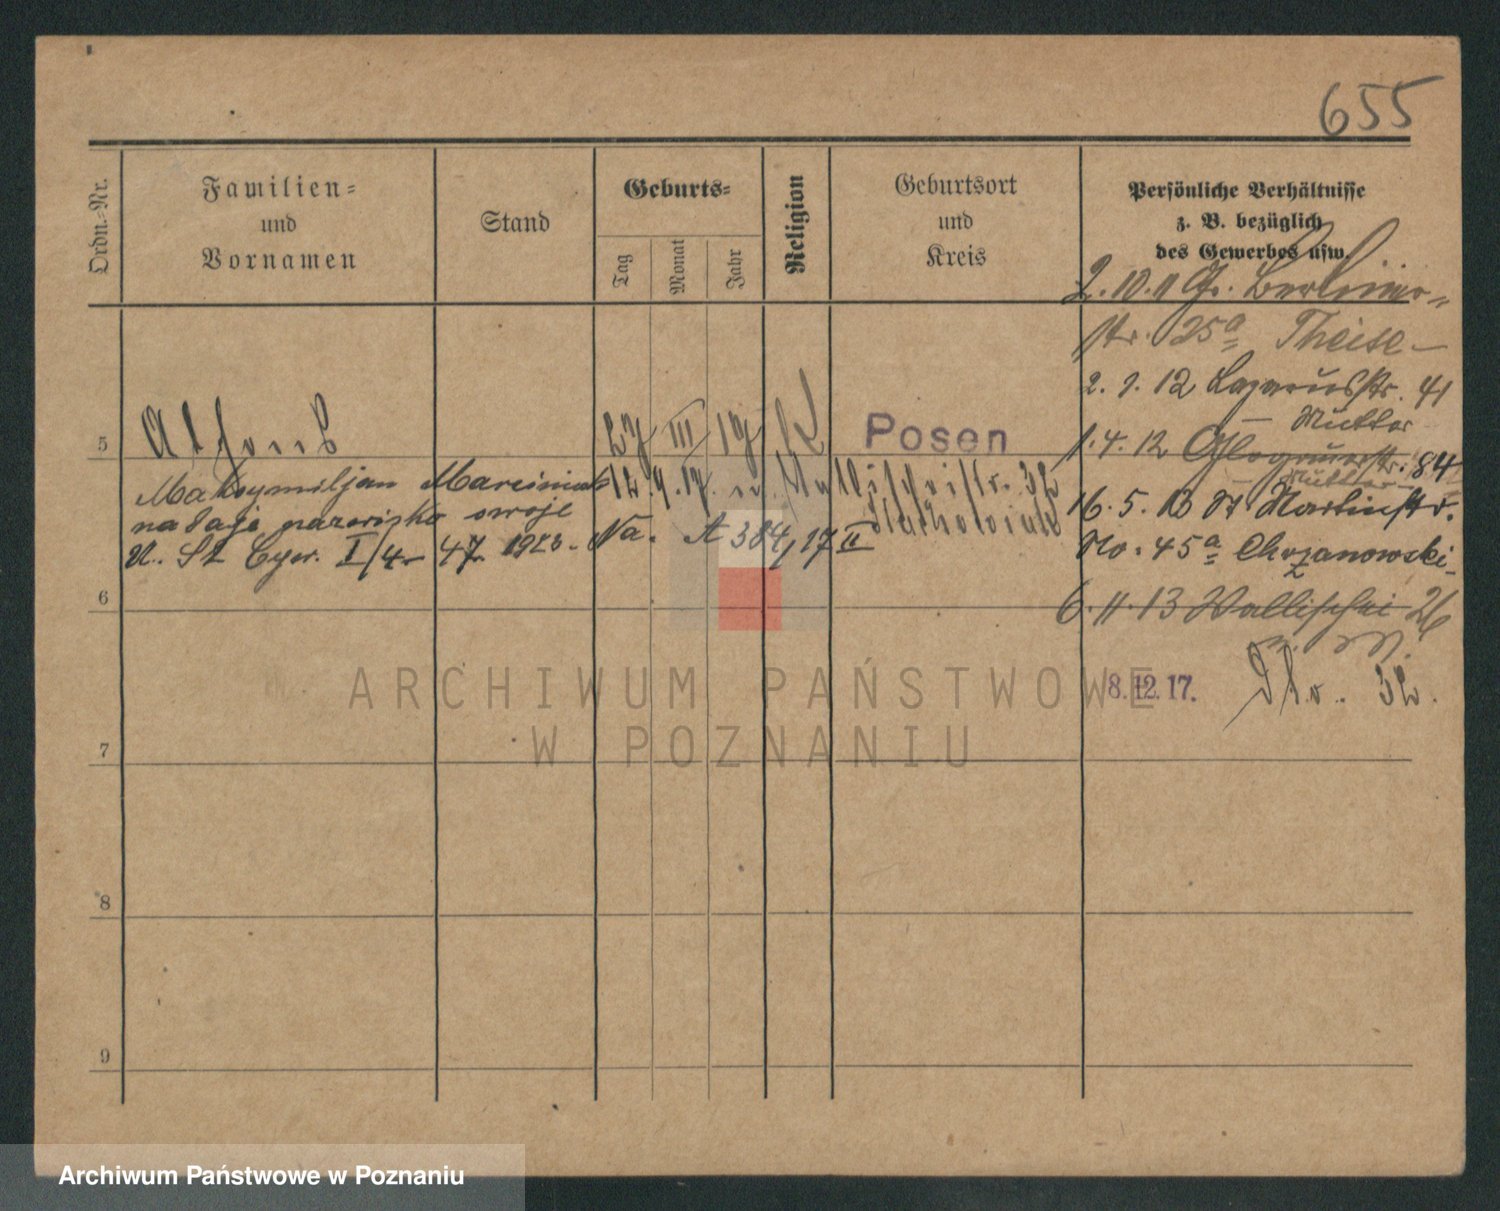 655
Ordn.-Nr.
Familien-
und
Vornamen
Stand
Geburts-
Tag
Monat
Jahr
Religion
Geburtsort
und
Kreis
Persönliche Verhältnisse
z. B. bezüglich
des Gewerbes usw.
2. 10. 11 Gr. Berliner-
str. 25a Theise
2. 1. 12 Lazarusstr. 41
Mutter
5 Alfons 27 III 17 K Posen
1. 4. 12 Glogauerstr. 84
Mutter
Maksymiljan Marciniak 12. 9. 17. 32
nadaje nazwisko swoje
16. 5. 13 St Martinstr.
U. St. Cyw. I/4 47 1923. Na. A 384/17 II
No. 45a Chrzanowski
6
6. 11. 13 Wallischei 26
8. 12. 17. 32.
7
8
9
ARCHIWUM PAŃSTWOWE
W POZNANIU
Archiwum Państwowe w Poznaniu